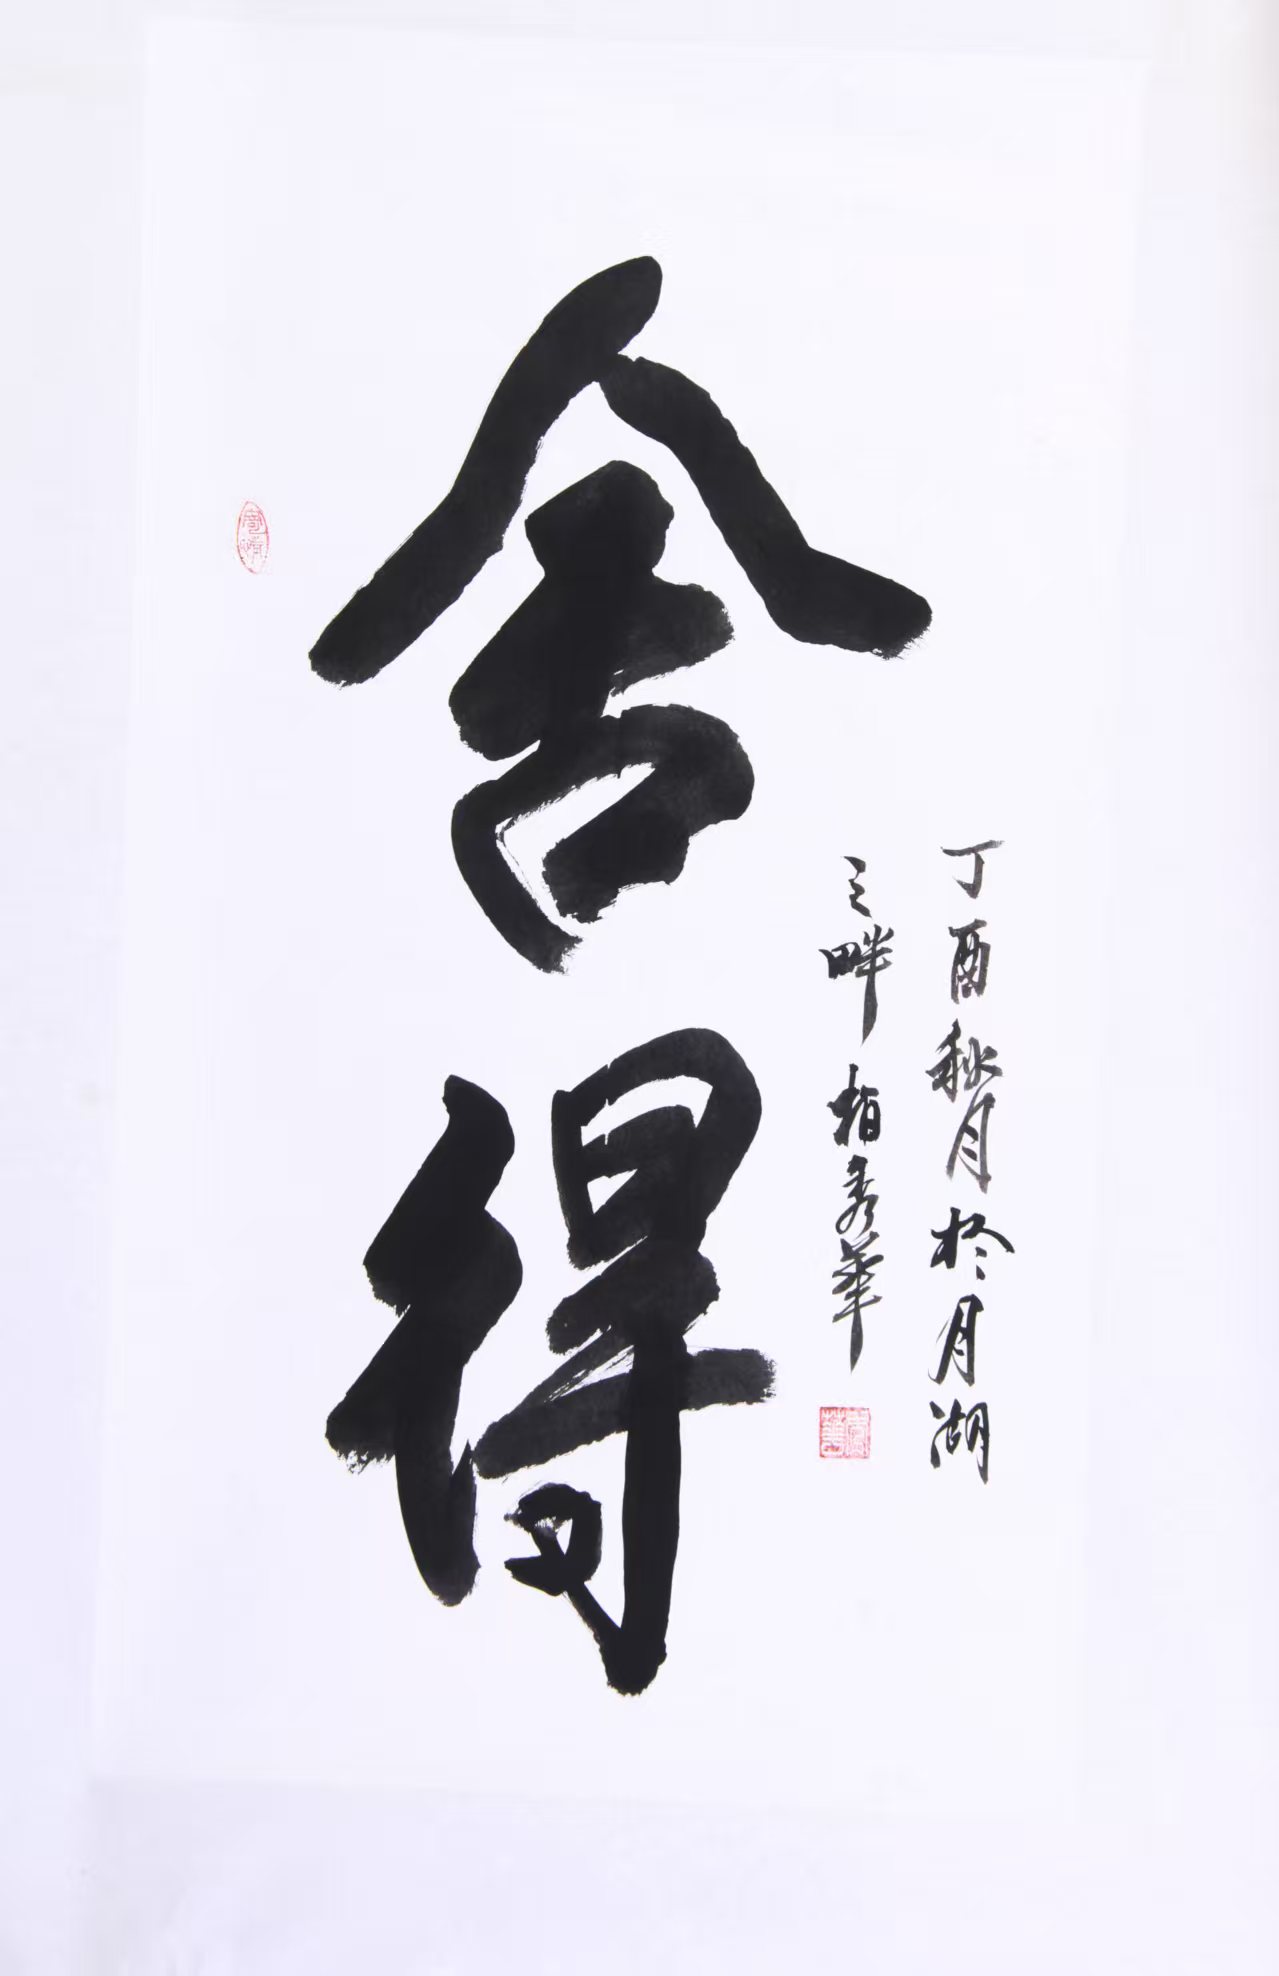 舍得
丁酉秋月於月湖
之畔 柏秀華